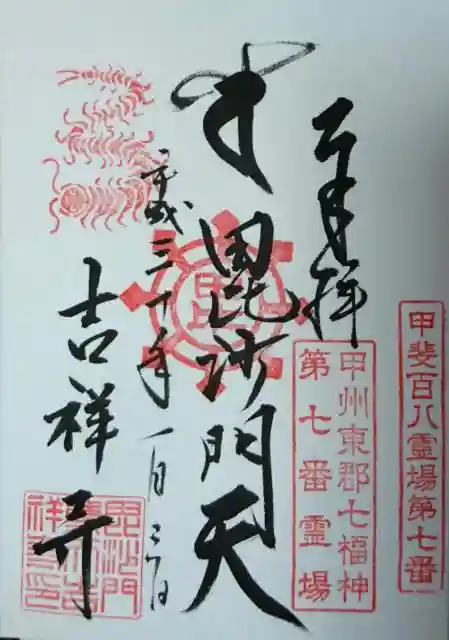 奉拝
甲斐百八霊場第七番
甲州東郡七福神
第七番霊場
毘沙門天
毘
平成三十年一月三日
吉祥寺
毘沙門